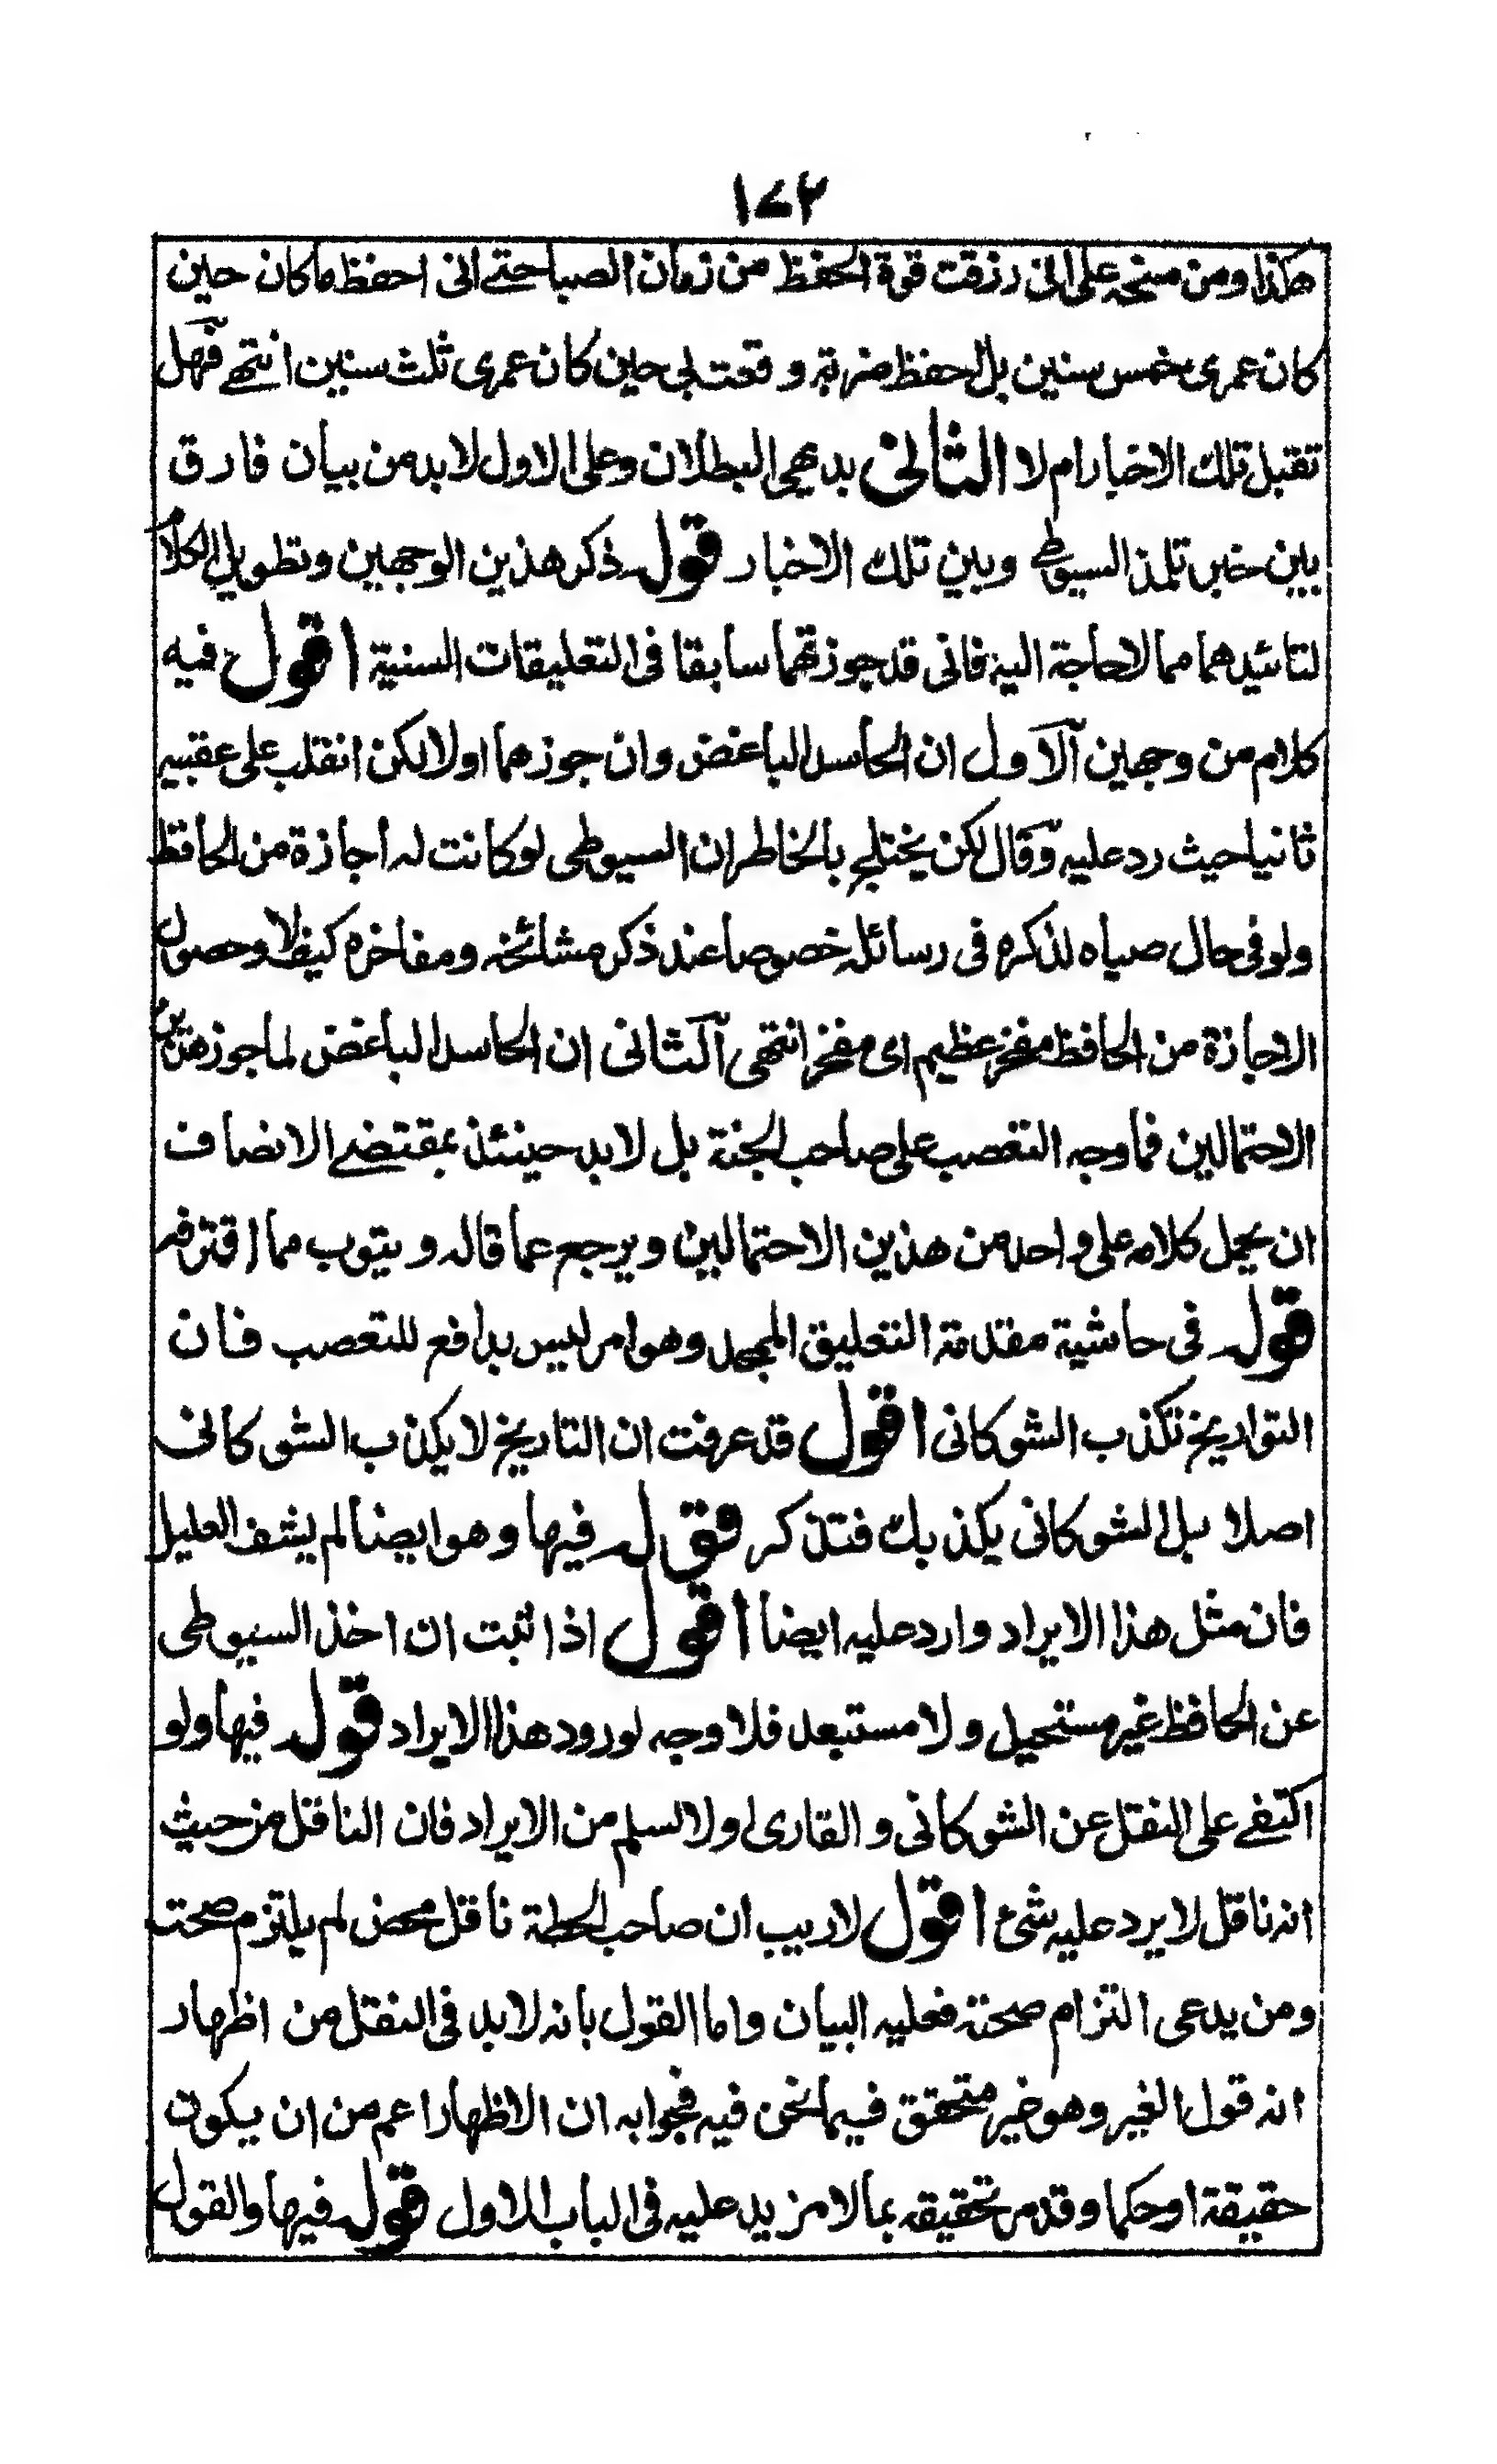 ١٧٢
هكذا ومن منحه على انى رزقت قوة الحفظ من زمان الصبا حتے انى احفظ ما كان حين
كان عمرى خمس سنين بل احفظ ضربة وقعت بى حين كان عمرى ثلث سنين انتهے فهل
تقبل تلك الاخبار ام لا الثانى بديهى البطلان وعلى الاول لابد من بيان فارق
بين خبر تلمذ السيوطى وبين تلك الاخبار قوله ذكر هذين الوجهين وتطويل الكلام
لتائيدهما مما لا حاجة اليه فانى قد جوزتهما سابقا فى التعليقات السنية اقول فيه
كلام من وجهين الاول ان الحاسد الباغض وان جوزهما اولا لكن انقلب على عقبيه
ثانيا حيث رد عليه وقال لكن يختلج بالخاطر ان السيوطى لو كانت له اجازة من الحافظ
ولو فى حال صباه لذكره فى رسائله خصوصا عند ذكر مشائخه ومفاخره كيف لا وحصول
الاجازة من الحافظ مفخر عظيم اى مفخر انتهى الثانى ان الحاسد الباغض لما جوز هذين
الاحتمالين فما وجه التعصب على صاحب الجنة بل لابد حينئذ بمقتضے الانصاف
ان يحمل كلامه على واحد من هذين الاحتمالين ويرجع عما قاله ويتوب مما اقترفه
قوله فى حاشية مقدمة التعليق الممجد وهو امر ليس بدافع للتعصب فان
التواريخ تكذب الشوكانى اقول قد عرفت ان التاريخ لا يكذب الشوكانى
اصلا بل الشوكانى يكذبك فتذكر قوله فيها وهو ايضا لم يشف العليل
فان مثل هذا الايراد وارد عليه ايضا اقول اذا ثبت ان اخذ السيوطى
عن الحافظ غير مستحيل ولا مستبعد فلا وجه لورود هذا الايراد قوله فيها ولو
اكتفے على النقل عن الشوكانى والقارى اولا لسلم من الايراد فان الناقل من حيث
انه ناقل لا يرد عليه شئ اقول لاريب ان صاحب الحطة ناقل محض لم يلتزم صحته
ومن يدعى التزام صحته فعليه البيان واما القول بانه لابد فى النقل من اظهار
انه قول الغير وهو غير متحقق فيما نحن فيه فجوابه ان الاظهار اعم من ان يكون
حقيقة او حكما وقد مر تحقيقه بما لا مزيد عليه فى الباب الاول قوله فيها والقول